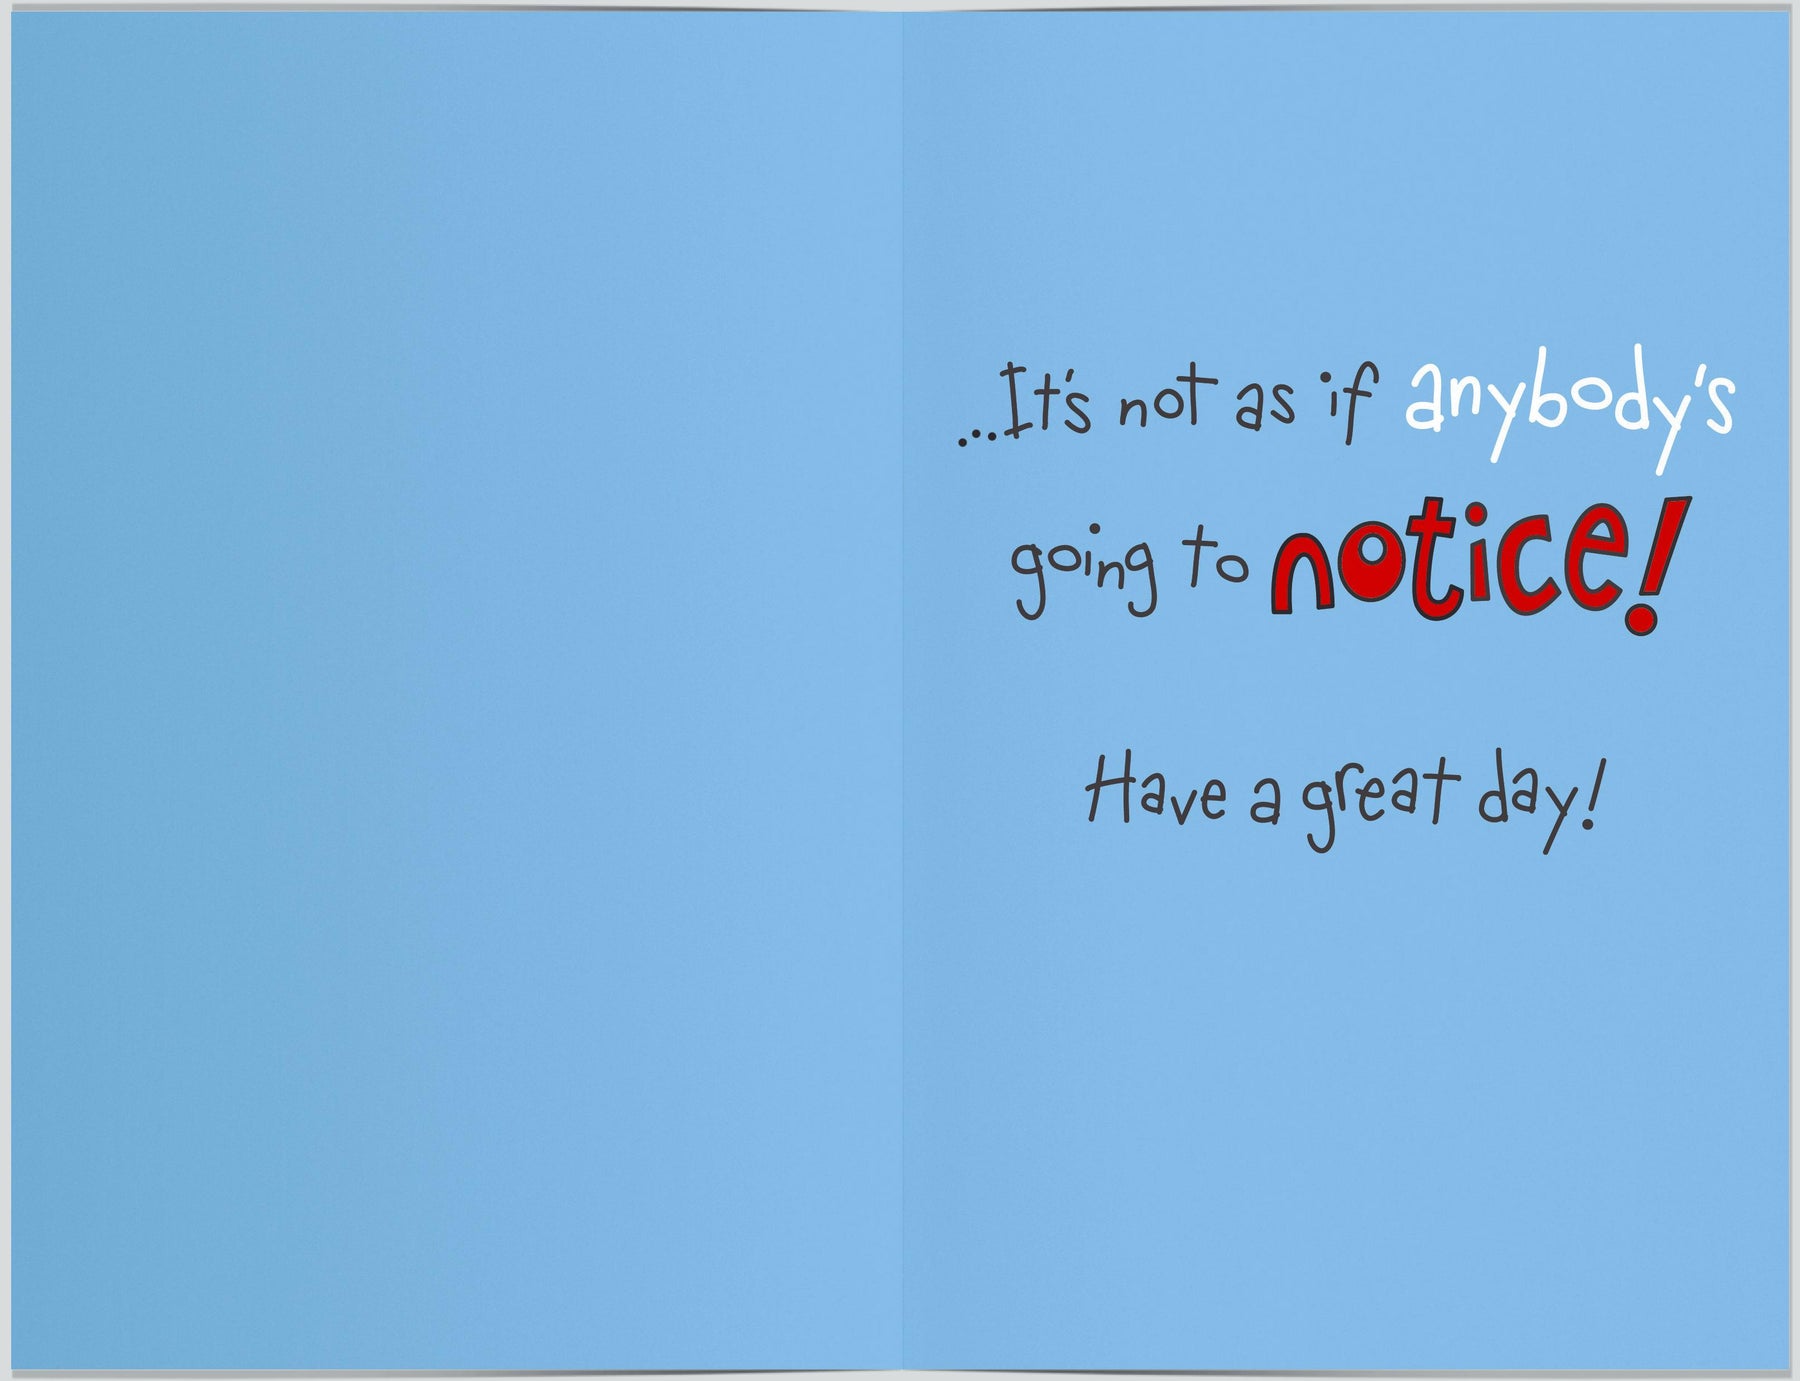 ...It's not as if anybody's
going to notice!
Have a great day!